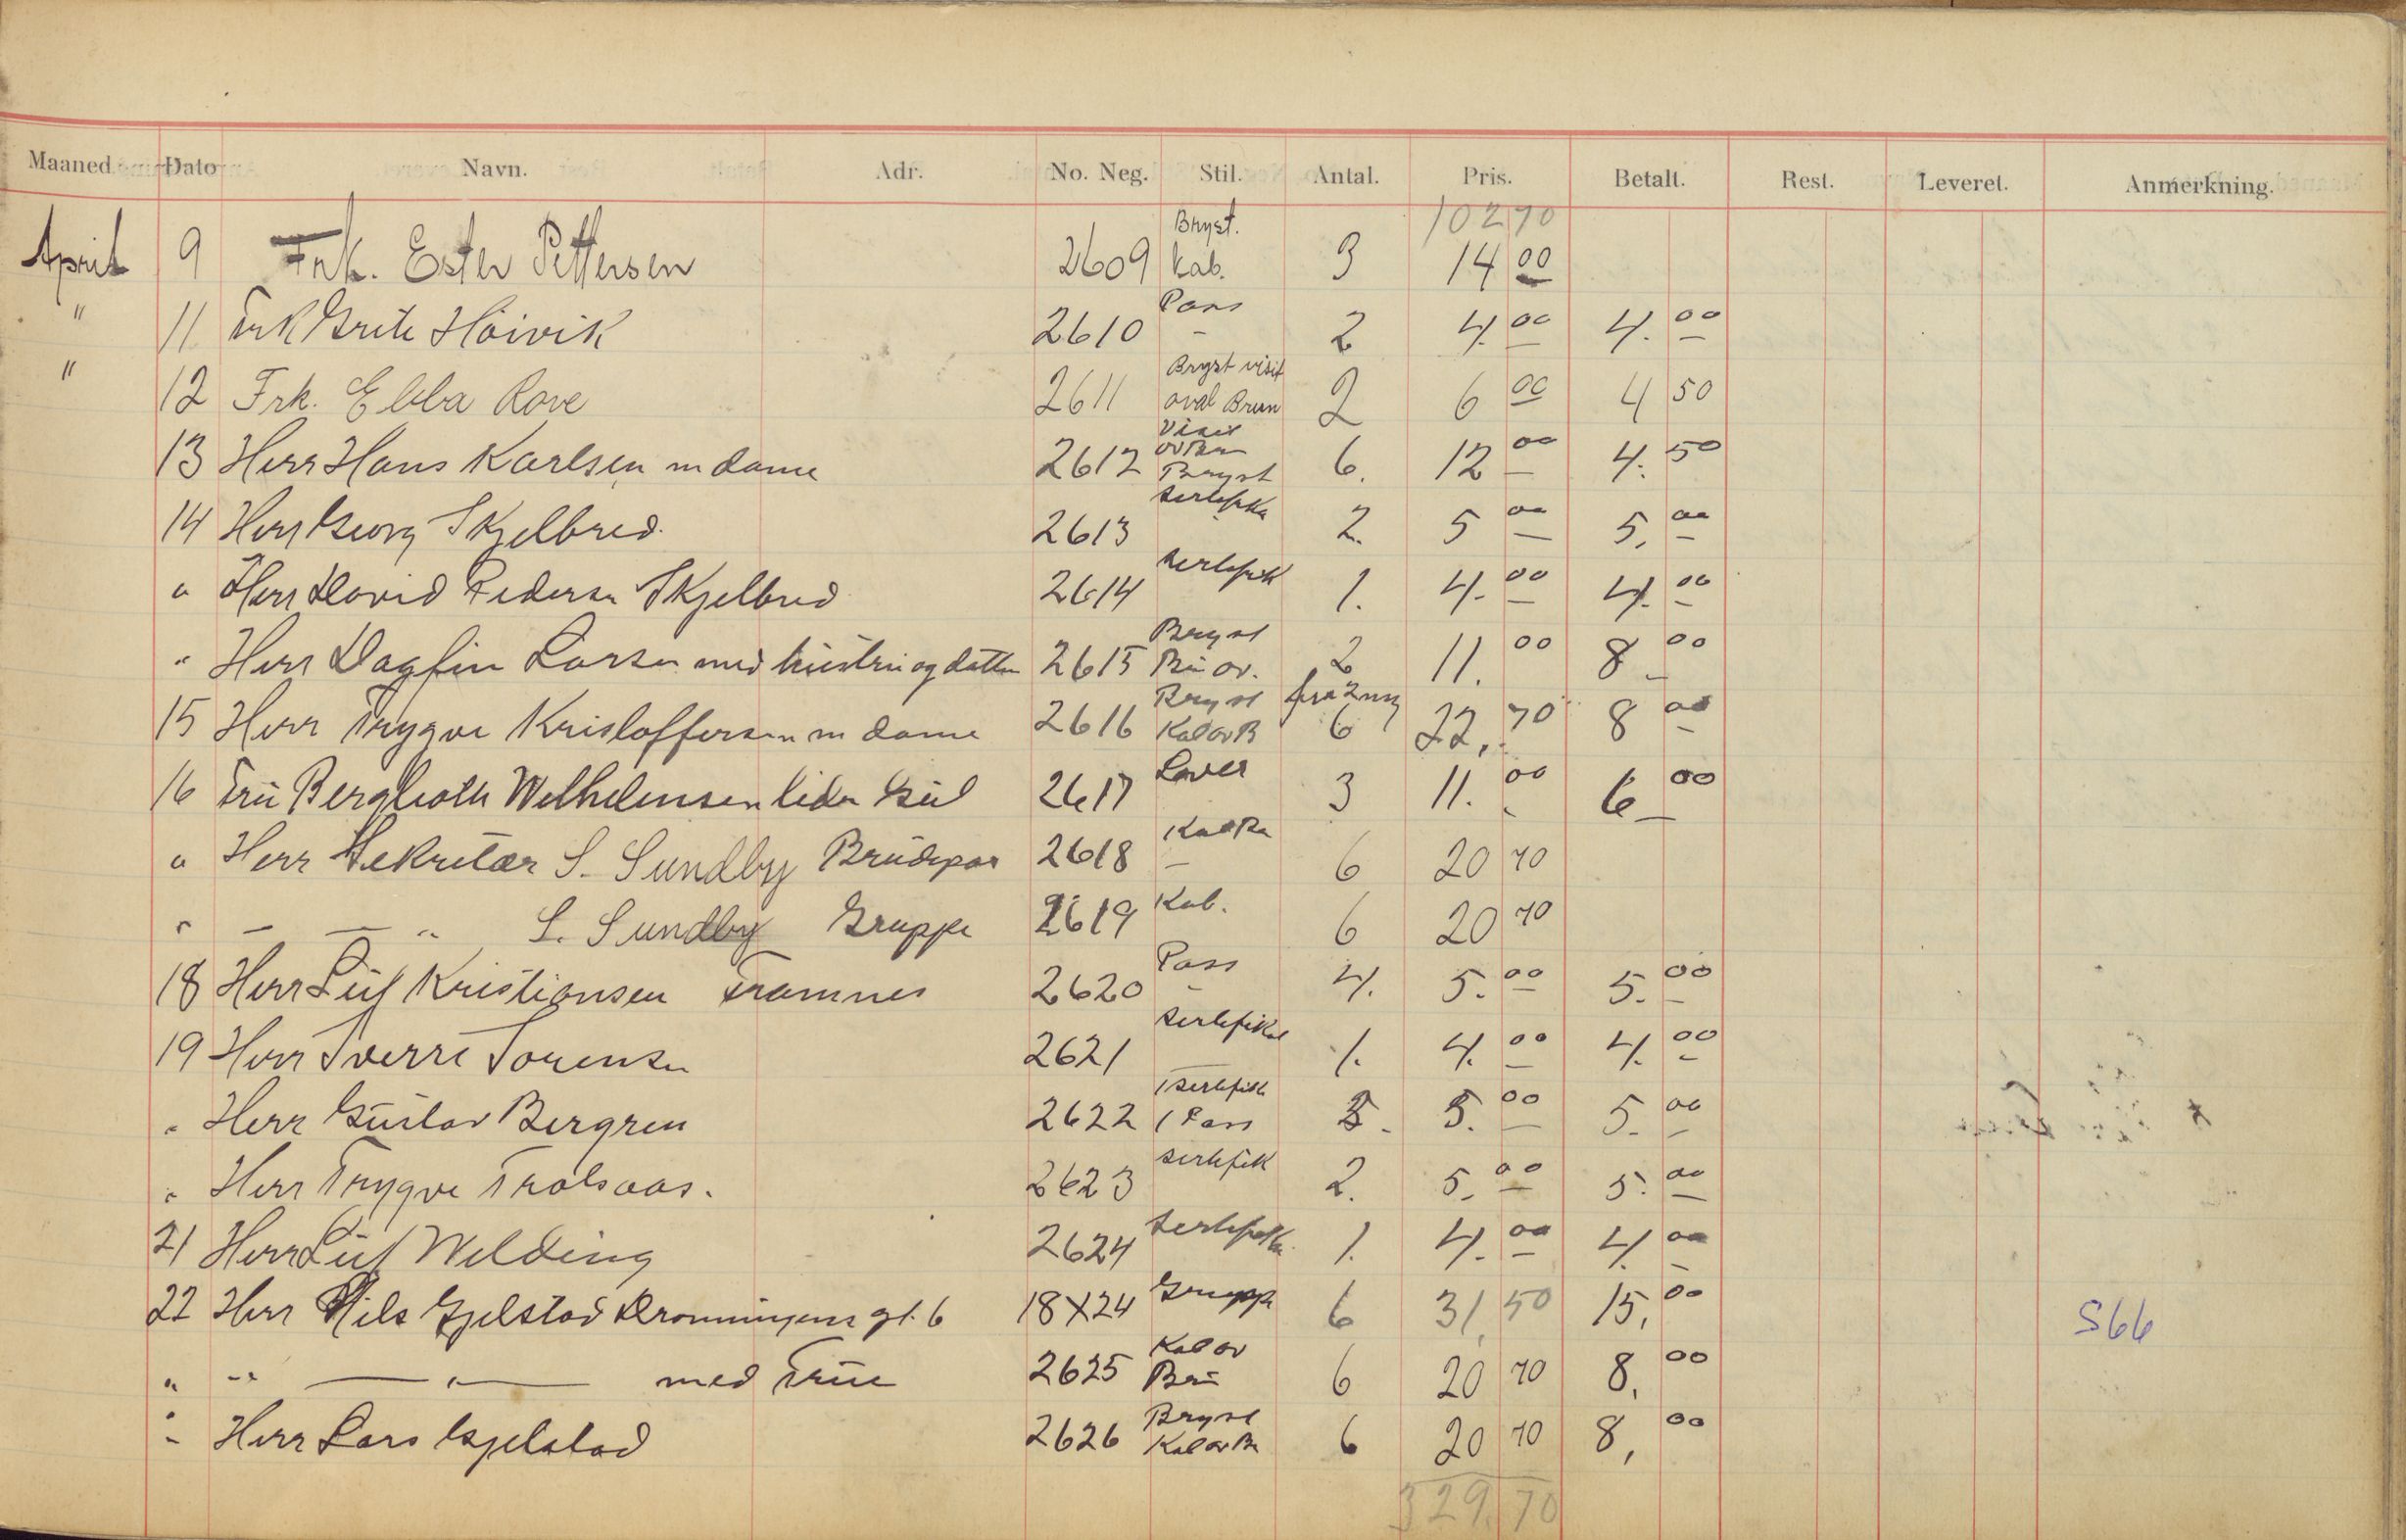 Maaned. Dato Navn. Adr. No. Neg. Stil. Antal. Pris. Betalt. Rest. Leveret. Anmerkning.
102 70
April 9 Frk. Ester Pettersen 2609 Bryst. kab. 3 14 00
" 11 Frk Grete Höivik 2610 Pass - 2 4. 00 4. 00
" 12 Frk. Ebba Rove 2611 Bryst visit oval Brun 2 6 00 4 50
13 Herr Hans Karlsen m dame 2612 Visit ov Brun Bryst 6. 12 00 4. 50
14 Herr Georg Skjelbred. 2613 2. 5 00 5, 00
" Herr David Pedersen Skjelbred 2614 sertefik 1. 4. 00 4. 00
" Herr Dagfin Larsen med hüstrü og datter 2615 Bryst Brü ov. 2 11. 00 8 00
15 Herr Trygve Kristoffersen m dame 2616 Bryst Kab ov B fra 2 neg 6 22, 70 8 00
16 Frü Bergliotth Welhelmsen 2617 3 11. 00 6 00
" Herr Sekretær S. Sundby Brüdepar 2618 Kab Br - 6 20 70
" — — " S. Sundby Gruppe 2619 Kab. 6 20 70
18 Herr Leif Kristiansen Framnes 2620 Pass - 4. 5. 00 5. 00
19 Herr Sverre Sörensen 2621 sertefikat 1. 4. 00 4. 00
" Herr Güstav Bergren 2622 1 sertefik 1 Pass 5. 5. 00 5. 00
" Herr Trygve Trolsaas. 2623 sertefik 2. 5, 00 5. 00
21 Herr Leif Welding 2624 1. 4. 00 4. 00
22 Herr Nils Gjelstad Dronningens gt. 6 18X24 Gruppe 6 31, 50 15, 00 S66
" " — " — med Früe 2625 Kab ov Brü 6 20 70 8, 00
" Herr Lars Gjelstad 2626 Bryst Kab ov Br 6 20 70 8, 00
329. 70